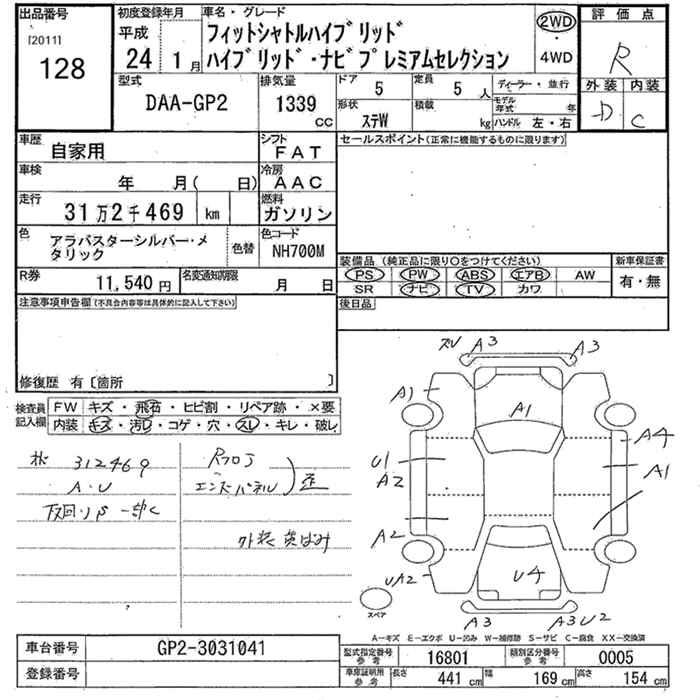 出品番号
[2011]
128
初度登録年月
平成
24 1月
車名・グレード
フィットシャトルハイブリッド
ハイブリッド・ナビプレミアムセレクション
2WD
・
4WD
評価点
R
外装 内装
D C
型式
DAA-GP2
排気量
1339
CC
ドア 5
定員 5人
ディーラー・並行
形状 ステW
積載 kg
モデル年式 年
ハンドル 左・右
車歴
自家用
シフト
FAT
セールスポイント(正常に機能するものに限ります)
車検
年 月( 日)
冷房
AAC
走行
31万2千469 km
燃料
ガソリン
色
アラバスターシルバー・メタリック
色替
色コード
NH700M
装備品(純正品に限り○をつけてください)
PS PW ABS エアB AW
SR ナビ TV カワ
新車保証書
有・無
R券
11,540円
名変通知期限
月 日
後日品
注意事項申告欄(不具合内容等は具体的に記入して下さい)
修復歴 有〔箇所 〕
検査員
記入欄
FW キズ・飛石・ヒビ割・リペア跡・×要
内装 キズ・汚レ・コゲ・穴・スレ・キレ・破レ
312469
A・U
Rフロア
エンドパネル
歪
外装
A3 A3
A1 A1
A4
U1
A2
A1
A2
UA2
U4
A3 A3U2
スペア
A-キズ E-エクボ U-凹み W-補修跡 S-サビ C-腐食 XX-交換済
車台番号
GP2-3031041
登録番号
型式指定番号
参考
16801
類別区分番号
参考
0005
車庫証明用
参考
長さ 441 cm
幅 169 cm
高さ 154 cm